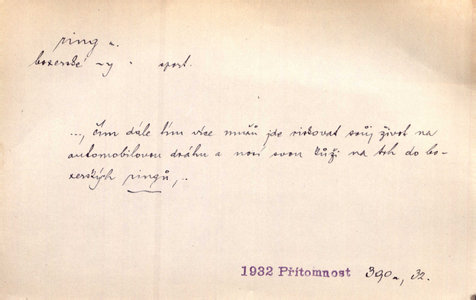 ring m.
boxerské ~y · sport.
..., čím dále tím více mužů jde riskovat svůj život na
automobilovou dráhu a nosí svou kůži na trh do bo-
xerských ringů,..
1932 Přítomnost 390, 32.